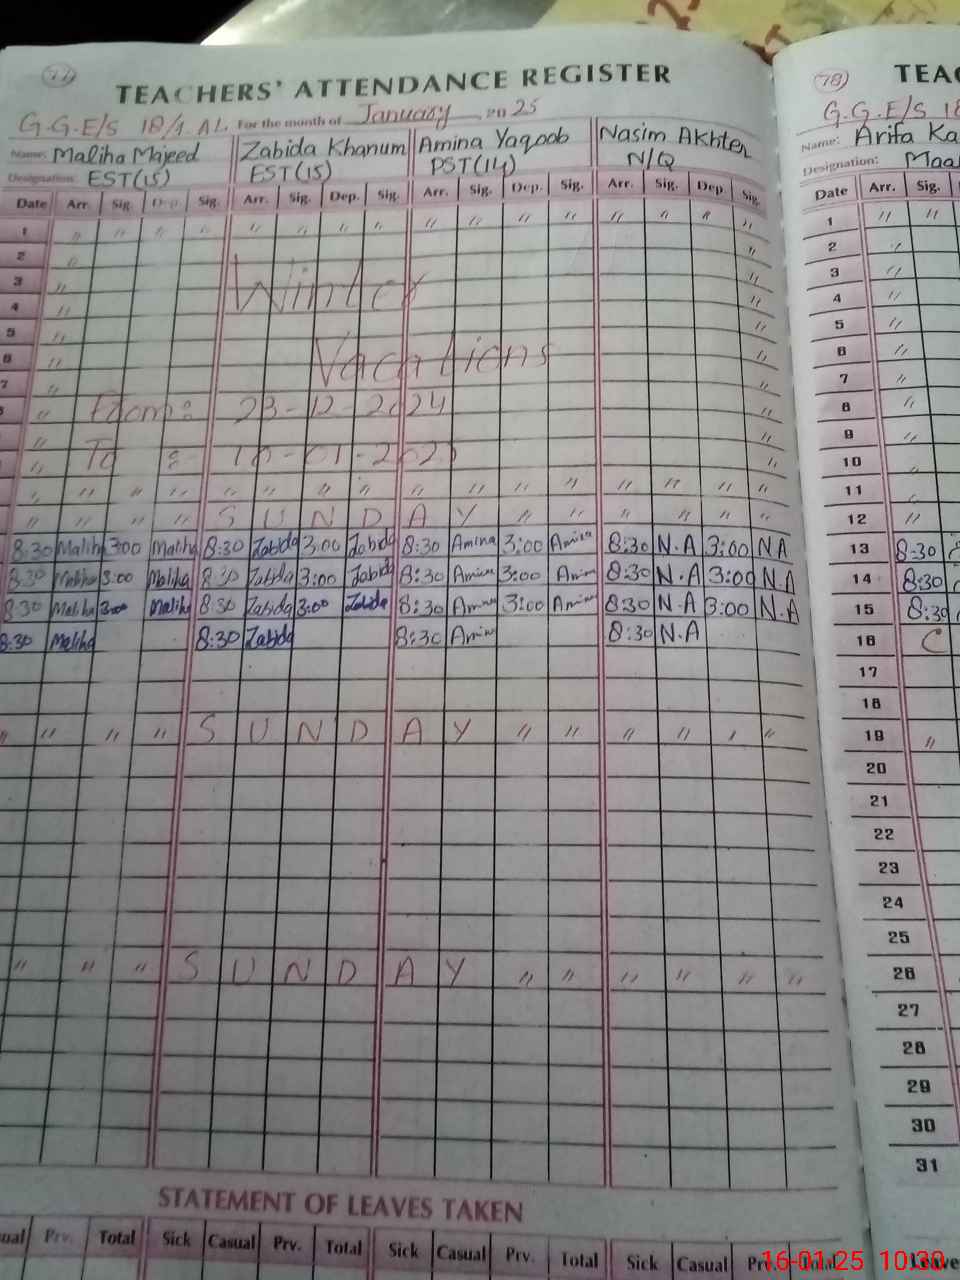 77
TEACHERS' ATTENDANCE REGISTER
G.G.E/S 18/1.AL. For the month of January 2025
Name: Maliha Majeed Zabida Khanum Amina Yaqoob Nasim Akhter
Designation: EST(15) EST(15) PST(14) N/Q
Date Arr. Sig. Dep. Sig. Arr. Sig. Dep. Sig. Arr. Sig. Dep. Sig. Arr. Sig. Dep. Sig.
1 " " " " " " " " " " " " " " " "
2 " "
3 " Winter "
4 " "
5 "
6 " Vacations "
7 " "
" From:- 23-12-2024 "
" "
" To :- "
" " " " " " " " " " " " " " " "
" " " " S U N D A Y " " " " " "
8:30 Maliha 3:00 Maliha 8:30 Zabida 3:00 Zabida 8:30 Amina 3:00 Amina 8:30 N.A 3:00 NA
8:30 Maliha 3:00 Maliha 8:30 Zabida 3:00 Zabida 8:30 Amina 3:00 Amin 8:30 N.A 3:00 N.A
8:30 Maliha 3:00 Maliha 8:30 Zabida 3:00 Zabida 8:30 Amina 3:00 Amina 8:30 N.A 3:00 N.A
8:30 Maliha 8:30 Zabida 8:30 Amina 8:30 N.A
" " " " S U N D A Y " " " " " "
" " " S U N D A Y " " " " " "
STATEMENT OF LEAVES TAKEN
ual Prv. Total Sick Casual Prv. Total Sick Casual Prv. Total Sick Casual Prv. Total
78
TEAC
G.G.E/S 18
Name: Arifa Ka
Designation: Maa
Date Arr. Sig.
1 " "
2 "
3 "
4 "
5 "
6 "
7 "
8 "
9 "
10 "
11 "
12 "
13 8:30
14 8:30
15 8:30
16 C
17
18
19 "
20
21
22
23
24
25
26
27
28
29
30
31
Leave
16-01-25 10:30